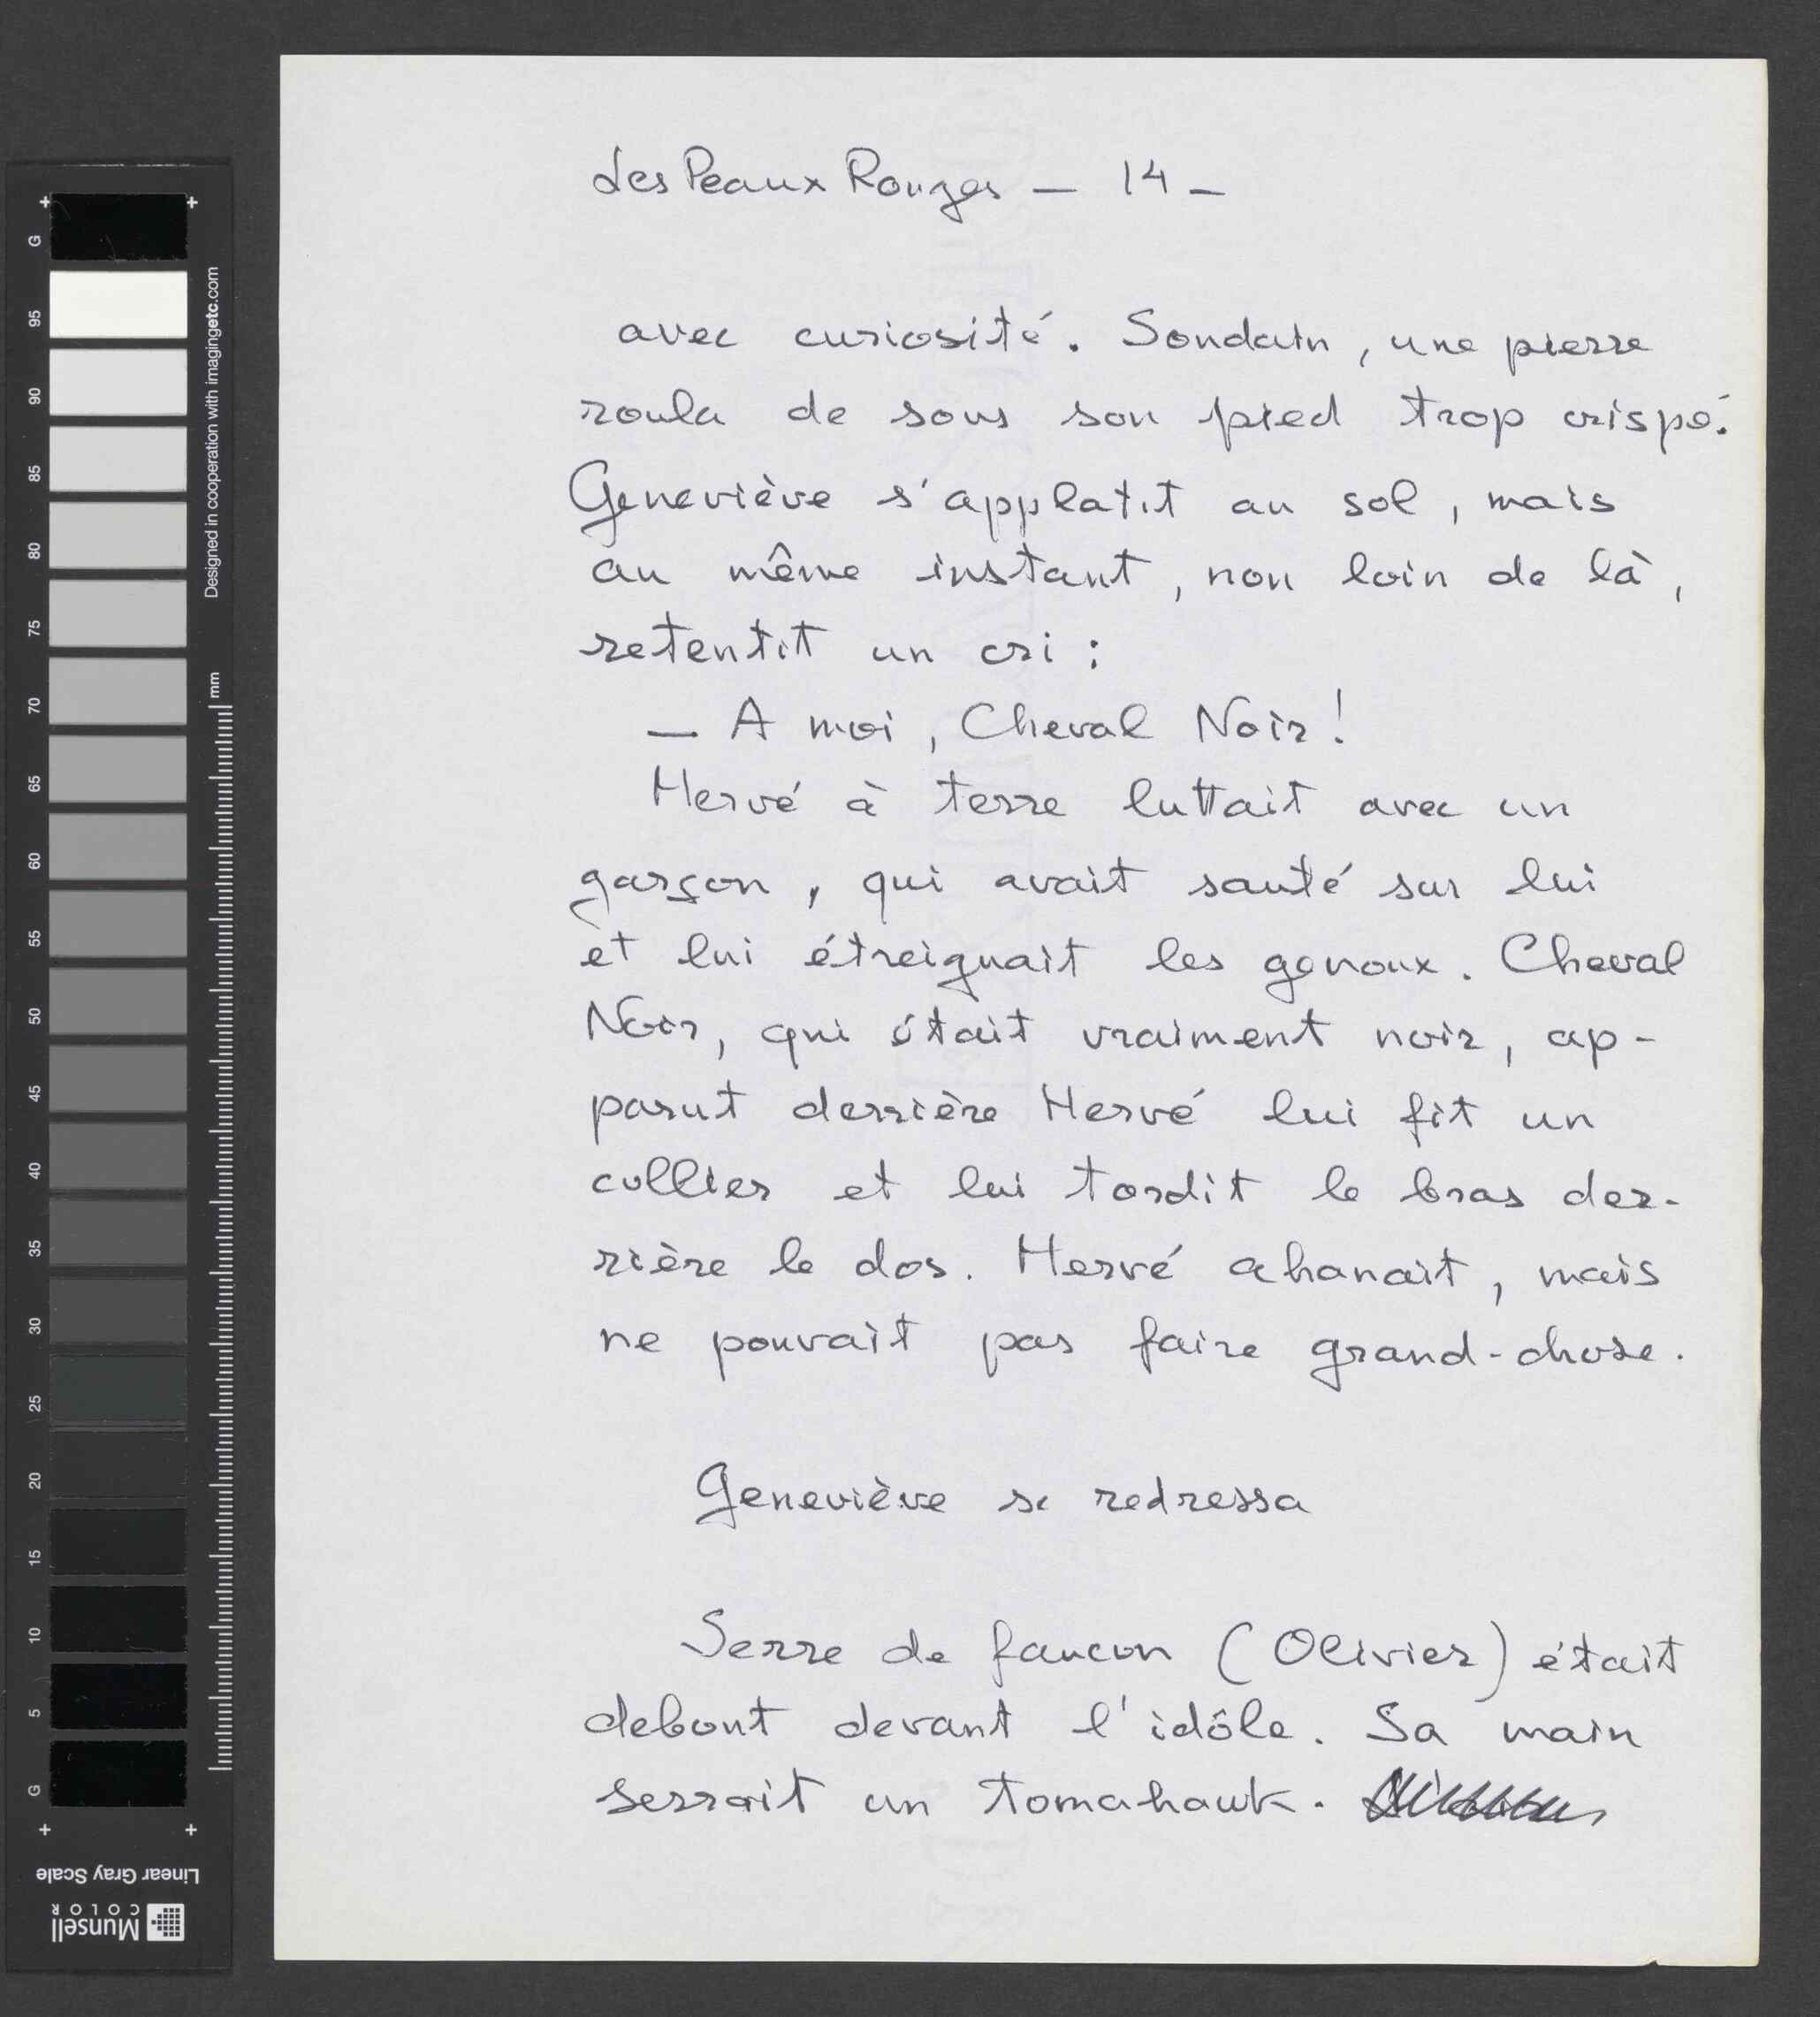 Les Peaux Rouges — 14 —
avec curiosité. Soudain, une pierre
roula de sous son pied trop crispé.
Geneviève s'applatit au sol, mais
au même instant, non loin de là,
retentit un cri :
— A moi, Cheval Noir !
Hervé à terre luttait avec un
garçon, qui avait sauté sur lui
et lui étreignait les genoux. Cheval
Noir, qui était vraiment noir, ap-
parut derrière Hervé lui fit un
collier et lui tordit le bras der-
rière le dos. Hervé ahanait, mais
ne pouvait pas faire grand-chose.
Geneviève se redressa
Serre de faucon (Olivier) était
debout devant l'idôle. Sa main
serrait un tomahawk.
G
95
90
85
80
75
70
65
60
55
50
45
40
35
30
25
20
15
10
5
G
Designed in cooperation with imagingetc.com
mm
Linear Gray Scale
Munsell
COLOR